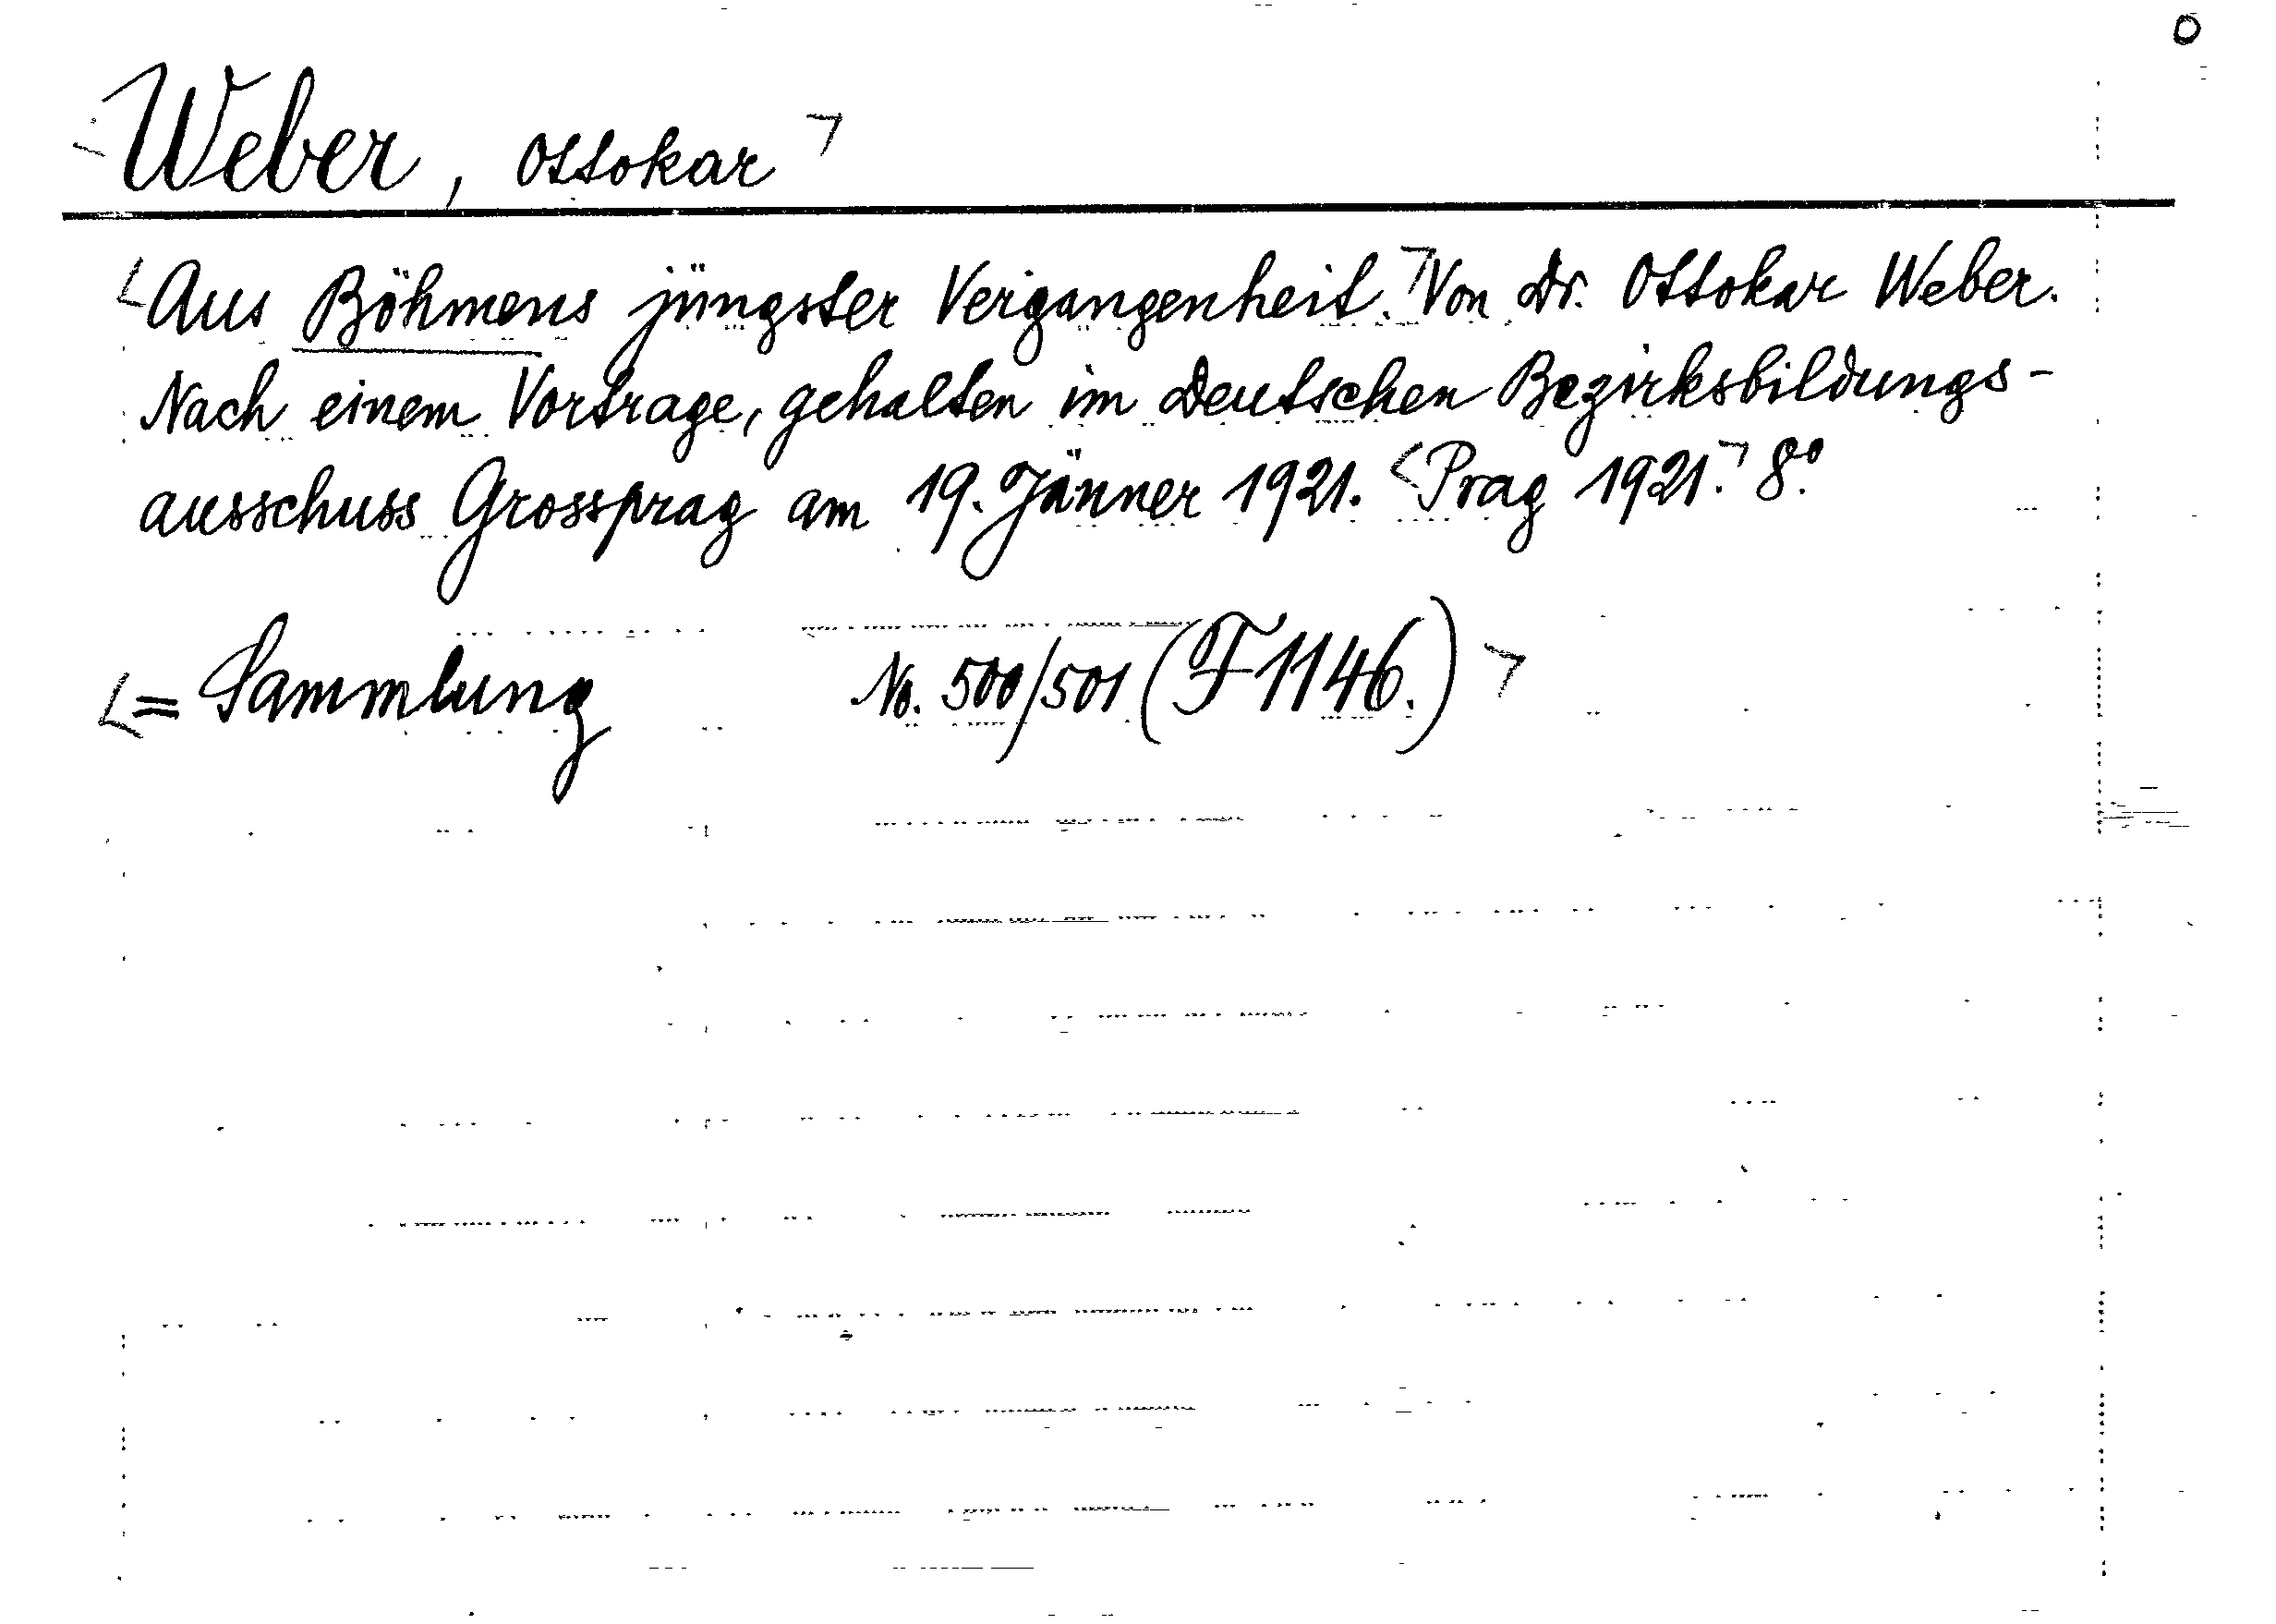 O
Weber, Ottokar
Aus Böhmens jüngster Vergangenheit. Von Dr. Ottokar Weber.
Nach einem Vortrage, gehalten im Deutschen Bezirksbildungs-
ausschuss Grossprag am 19. Jänner 1921. Prag 1921. 8°.
= Sammlung No. 500/501 (F 1146.)